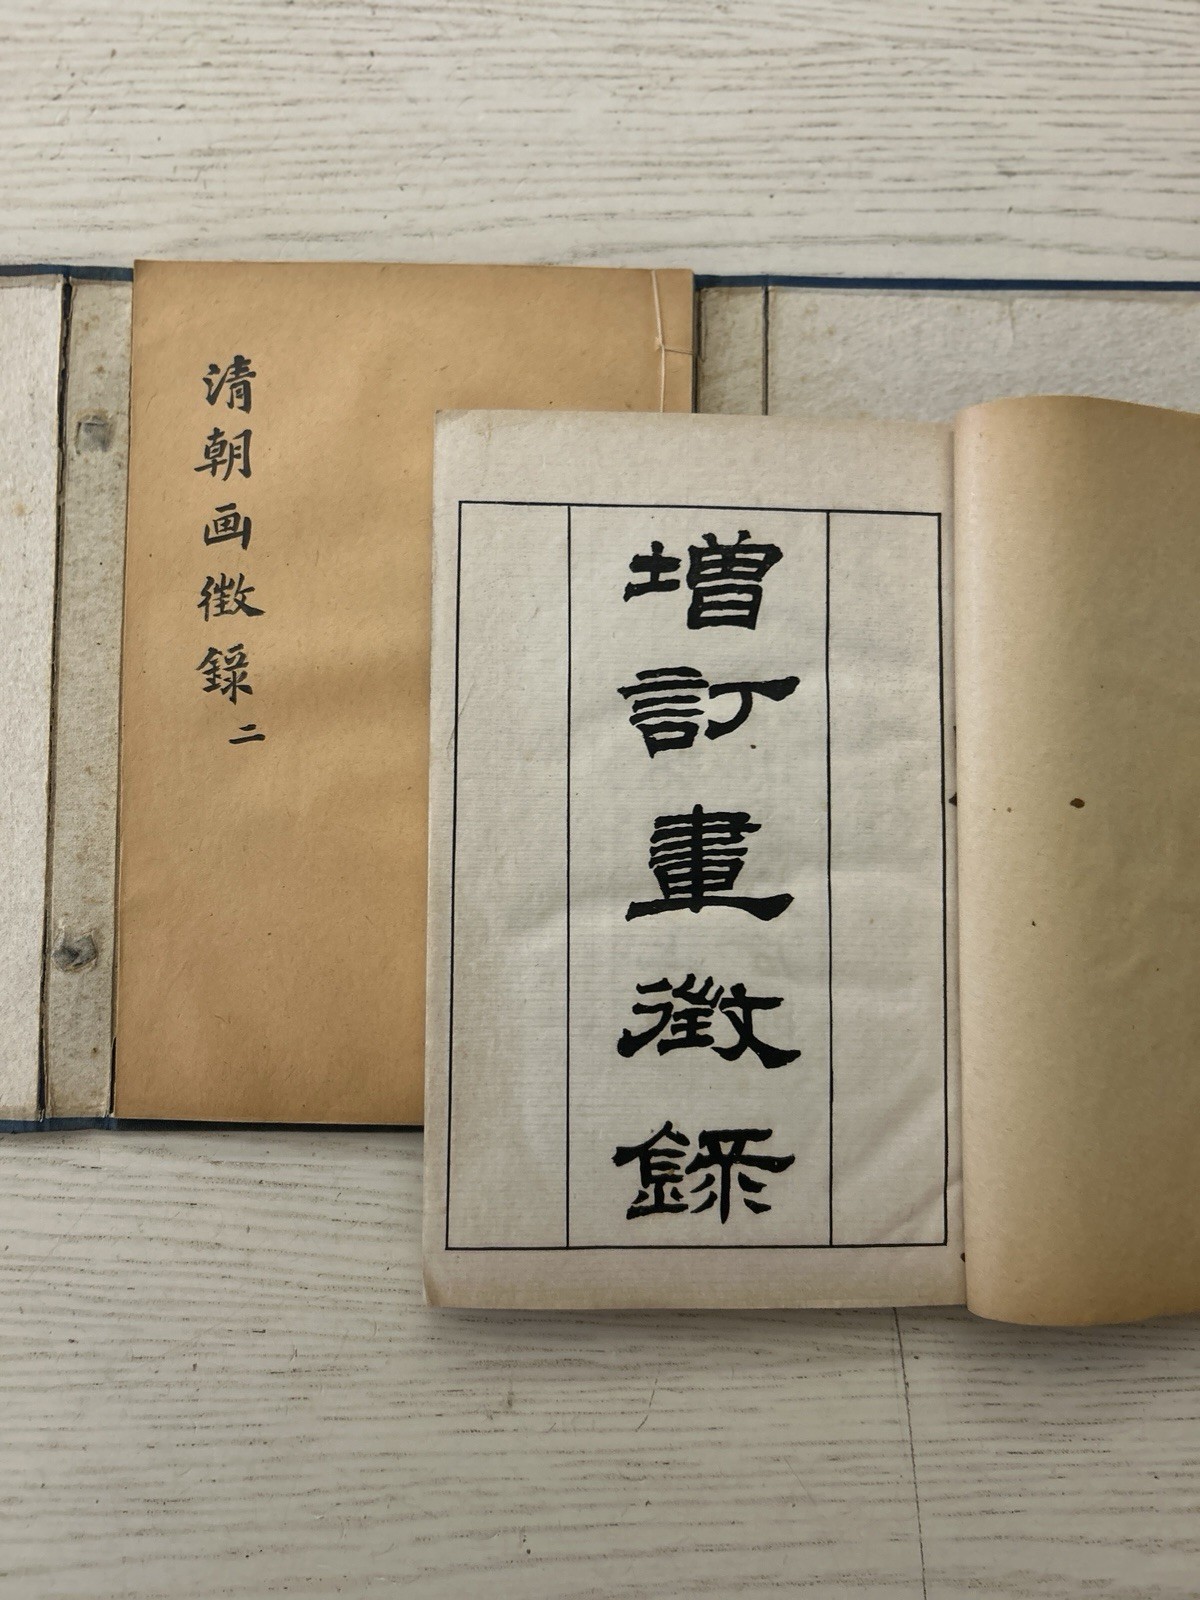 清朝画徴録二
增訂畫徵錄